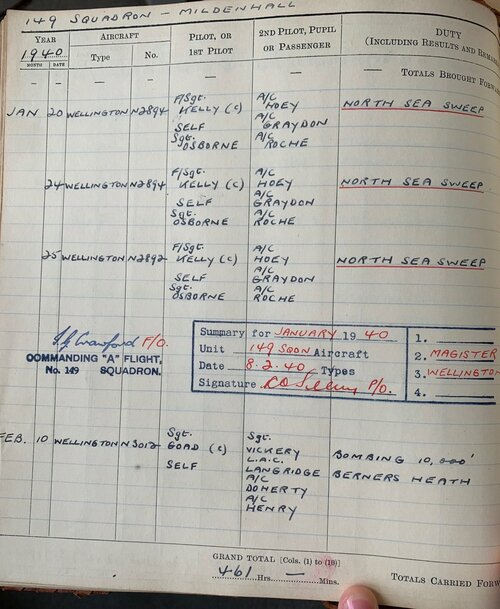 149 SQUADRON – MILDENHALL
YEAR AIRCRAFT PILOT, OR 2ND PILOT, PUPIL DUTY
1940 Type No. 1ST PILOT OR PASSENGER (INCLUDING RESULTS AND REMAR
MONTH DATE
— — — — — TOTALS BROUGHT FORWA
F/Sgt. A/C
JAN 20 WELLINGTON N2894 KELLY (C) HOEY NORTH SEA SWEEP
A/C
SELF GRAYDON
Sgt. A/C
OSBORNE ROCHE
F/Sgt. A/C
24 WELLINGTON N2894 KELLY (C) HOEY NORTH SEA SWEEP
A/C
SELF GRAYDON
Sgt. A/C
OSBORNE ROCHE
F/Sgt. A/C
25 WELLINGTON N2892 KELLY (C) HOEY NORTH SEA SWEEP
A/C
SELF GRAYDON
Sgt. A/C
OSBORNE ROCHE
Crawford F/O.
COMMANDING "A" FLIGHT,
No. 149 SQUADRON.
Summary for JANUARY 1940 1.
Unit 149 SQDN Aircraft 2. MAGISTER
Date 8.2.40 Types 3. WELLINGTON
Signature P/O. 4.
Sgt. Sgt.
FEB. 10 WELLINGTON N3012 GOAD (C) VICKERY BOMBING 10,000'
L.A.C.
SELF LANGRIDGE BERNERS HEATH
A/C
DOHERTY
A/C
HENRY
GRAND TOTAL [Cols. (1) to (10)]
461 Hrs. — Mins. TOTALS CARRIED FORW